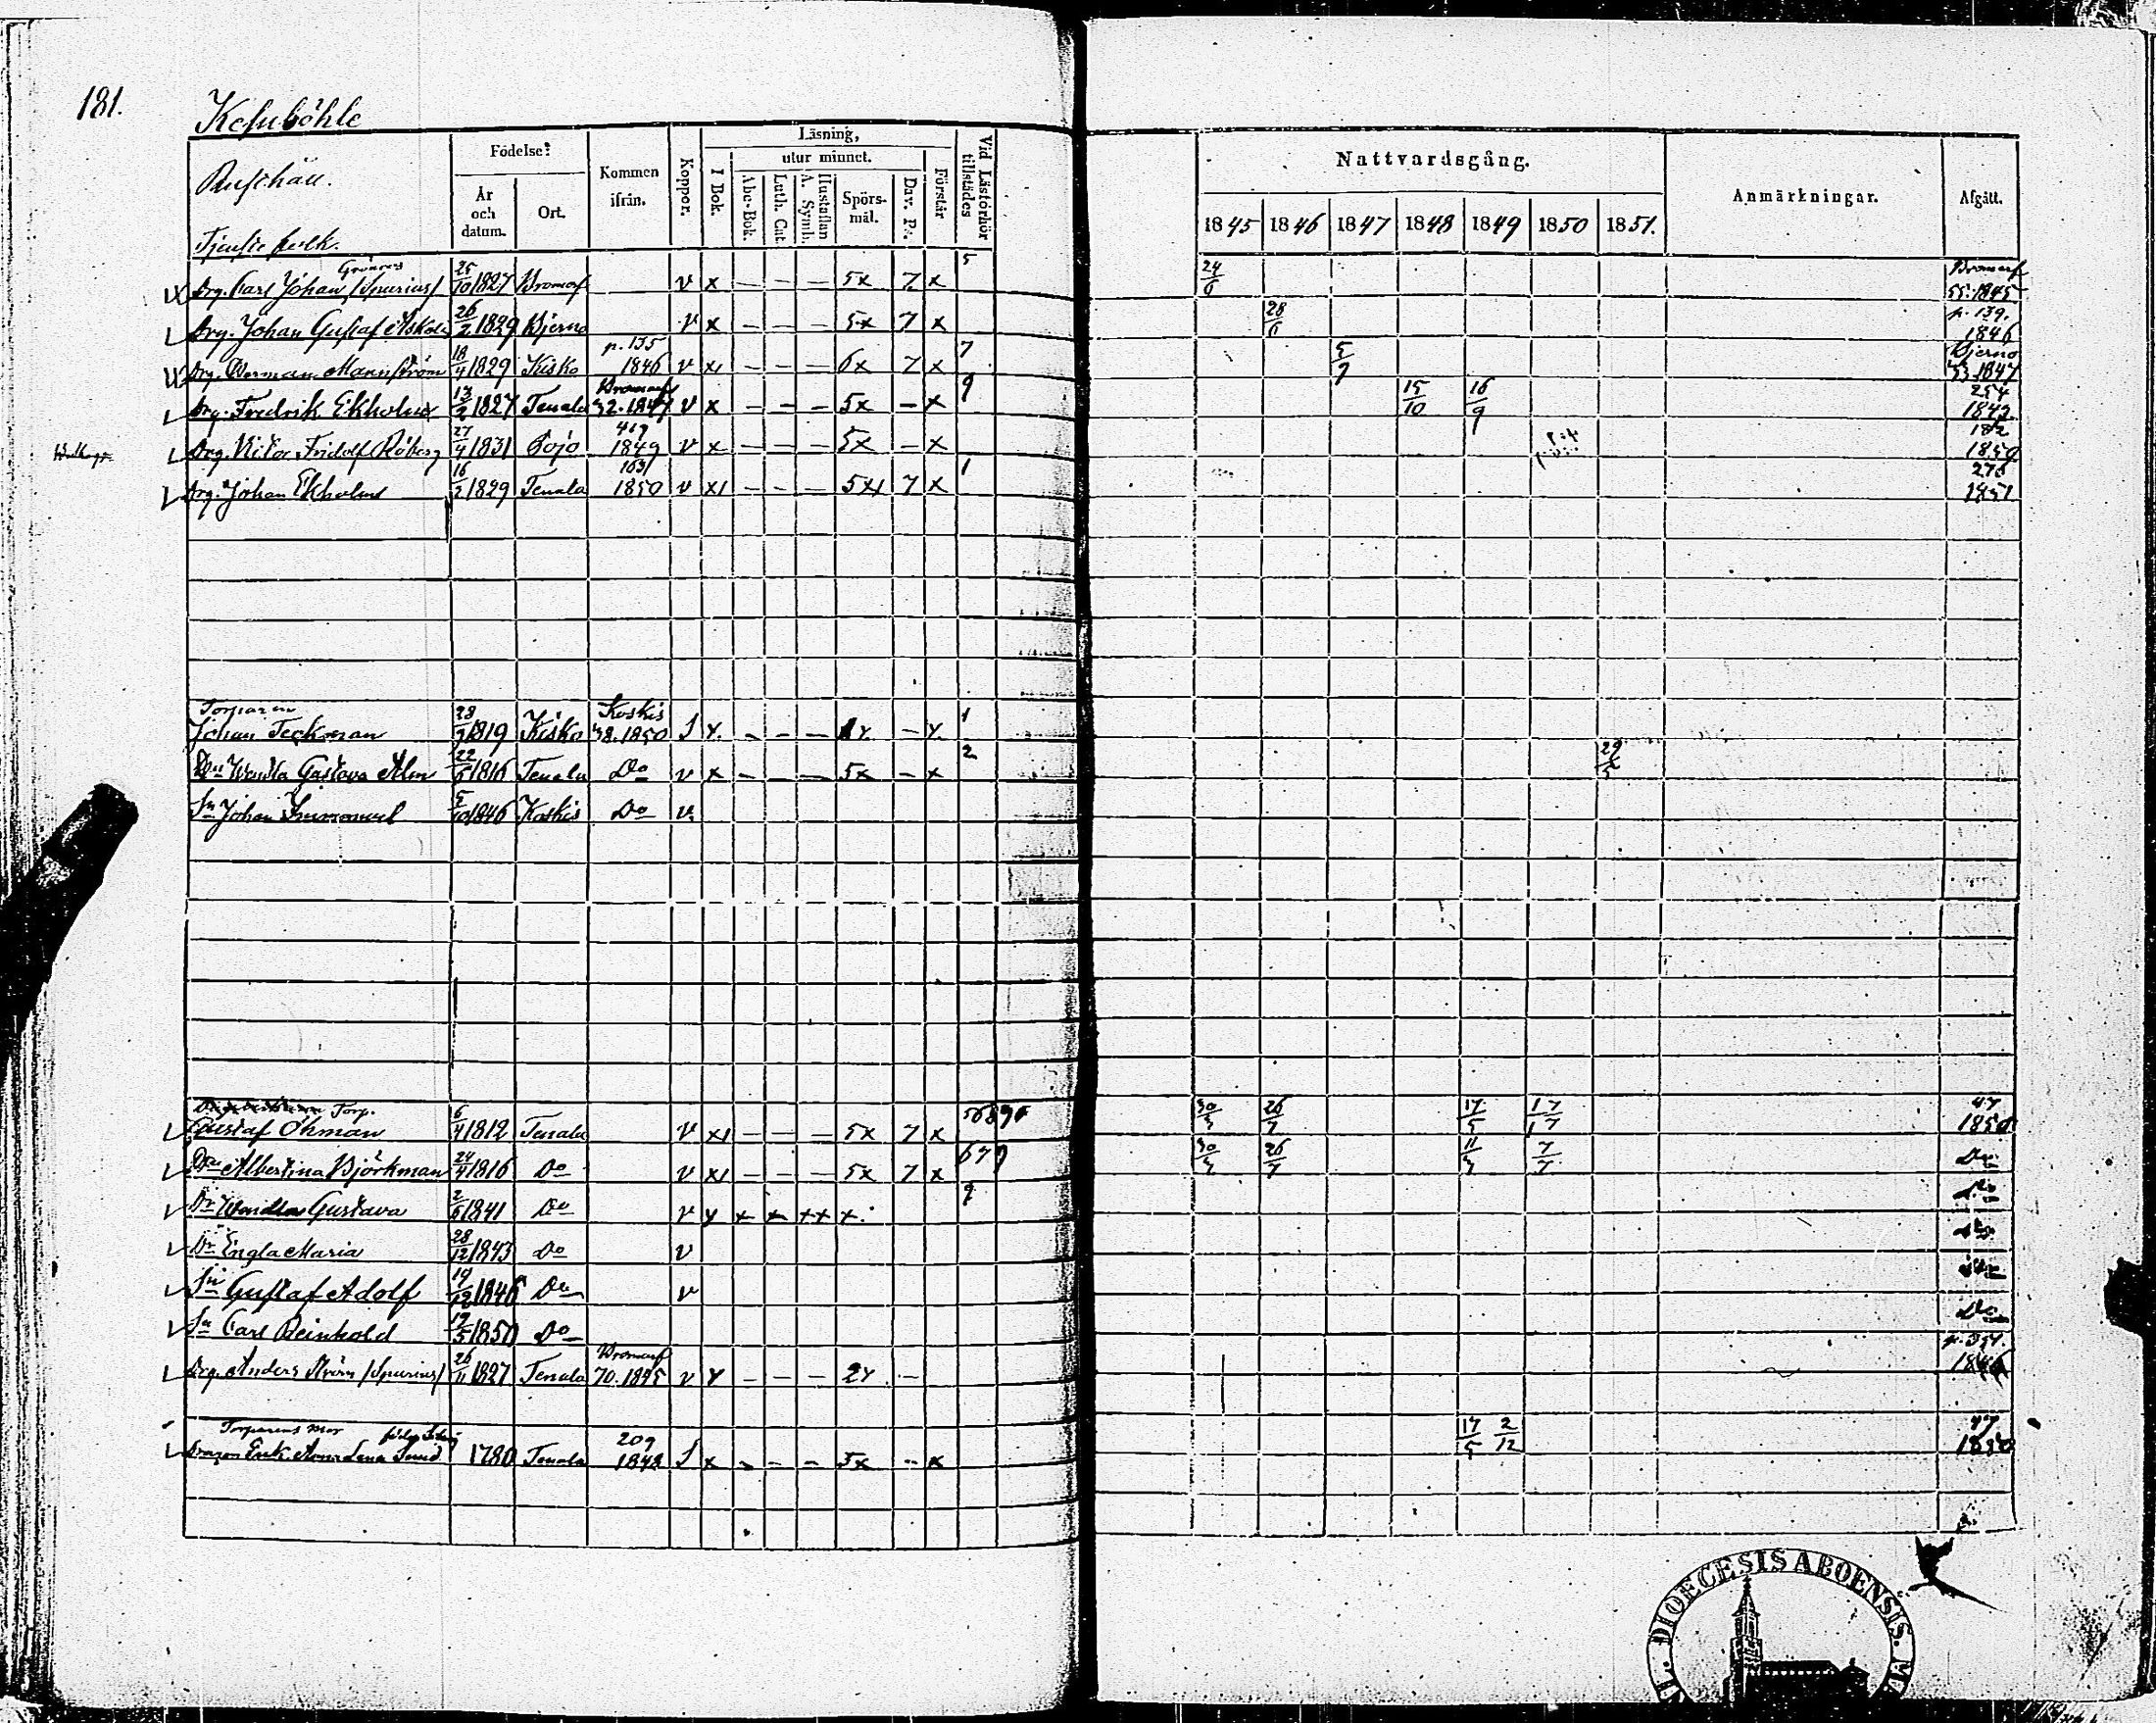 181.
Kesuböhle
Tjenste folk.
Födelse?
År och datum.
Ort.
Kommen ifrån.
Koppor.
Läsning,
I Bok.
utur minnet.
Abc-Bok.
Luth. Cat.
Hustaflan A. Symb.
Spörs-mål.
Dav. Ps.
Förstår
Vid Läsförhör tillstädes
Nattvardsgång.
1845 1846 1847 1848 1849 1850 1851.
Anmärkningar.
Afgått.
Drg. Carl Johan /Spurius/ 25/10 1827 Bromarf v x — — — 5x 7 x 5 24/6 Bromarf 55. 1845
Drg. Johan Gustaf 26/2 1829 Bjerno v x — — — 5x 7 x 28/6 p. 139. 1846
Drg. Herman Mannström 18/4 1829 Kisko p. 135 1846 v x — — — 6x 7 x 7 5/7 Bjerno 1847
Drg. Fredrik Ekholm 13/2 1827 Tenala Bromarf 32. 1847 v x — — — 5x — x 9 15/10 16/9 254 1849
Drg. Victor Fridolf Röberg 27/4 1831 Pojo 419 1849 v x — — — 5x — x 182 1850
Drg. Johan Ekholm 16/2 1829 Tenala 163 1850 v x — — — 5x 7 x 1 276 1851
Torparen
Johan Teckman 28/3 1819 Kisko Koskis 38. 1850 S x — — — — x 1
Hu Wendla Gustava Alm 22/5 1816 Tenala Do v x — — — 5x — x 2 29/5
Sn Johan Immanuel 5/10 1846 Koskis Do v.
Torp.
Gustaf Öhman 6/4 1812 Tenala v x — — — 5x 7 x 30/3 26/7 17/5 17/7 47 1850
Hu Albertina Björkman 24/4 1816 Do v x — — — 5x 7 x 679 30/3 26/7 11/3 7/7 Do
Dr Wendla Gustava 2/6 1841 Do v x x x x x x 9 Do
Dr Engla Maria 28/12 1843 Do v Do
Sn Gustaf Adolf 19/12 1846 Do v Do
Sn Carl Reinhold 19/5 1850 Do Do
Drg. Anders Ström /Spurius/ 26/11 1827 Tenala Bromarf 70. 1845 v x — — — 2x — p. 354. 1846
Torparens mor
Enk. Anna Lena 1780 Tenala 209 1848 S x — — — 5x — x 17/5 2/12 47 1850
DIOECESIS ABOENSIS.